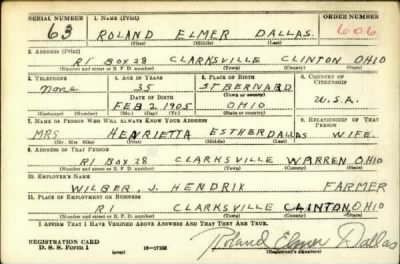 SERIAL NUMBER 1. NAME (Print) ORDER NUMBER
63 ROLAND ELMER DALLAS. 606
(First) (Middle) (Last)
2. ADDRESS (Print)
R1 BOX 28 CLARKSVILLE CLINTON OHIO
(Number and street or R. F. D. number) (Town) (County) (State)
3. TELEPHONE 4. AGE IN YEARS 5. PLACE OF BIRTH 6. COUNTRY OF CITIZENSHIP
none 35 ST BERNARD
DATE OF BIRTH (Town or county)
FEB 2 1905 OHIO U.S.A.
(Exchange) (Number) (Mo.) (Day) (Yr.) (State or country)
7. NAME OF PERSON WHO WILL ALWAYS KNOW YOUR ADDRESS 8. RELATIONSHIP OF THAT PERSON
MRS HENRIETTA ESTHER DALLAS WIFE.
(Mr., Mrs., Miss) (First) (Middle) (Last)
9. ADDRESS OF THAT PERSON
R1 BOX 28 CLARKSVILLE WARREN OHIO
(Number and street or R. F. D. number) (Town) (County) (State)
10. EMPLOYER'S NAME
WILBER. J. HENDRIX FARMER
11. PLACE OF EMPLOYMENT OR BUSINESS
R1 CLARKSVILLE CLINTON, OHIO
(Number and street or R. F. D. number) (Town) (County) (State)
I AFFIRM THAT I HAVE VERIFIED ABOVE ANSWERS AND THAT THEY ARE TRUE.
REGISTRATION CARD
D. S. S. Form 1 (over) Roland Elmer Dallas
(Registrant's signature)